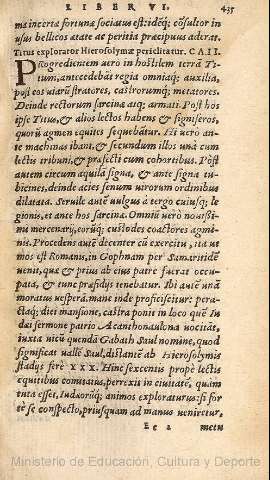 LIBER VI. 435
ma incerta fortuna sociatus est: idéq; cōsultor in
usus bellicos ætate ac peritia præcipuus aderat.
Titus explorator Hierosolymæ periclitatur. CA. II.
PRogredientem uerò in hostilem terrā Ti-
tum, antecedebāt regia omniaq; auxilia,
post eos uiarū stratores, castrorumq; metatores.
Deinde rectorum sarcina atq; armati. Post hos
ipse Titus, & alios lectos habens & signiferos,
quorū agmen equites sequebātur. Hi uerò an-
te machinas ibant, & secundum illos unà cum
lectis tribuni, & præfecti cum cohortibus. Pòst
autem circum aquilā signa, & ante signa tu-
bicines, deinde acies senum uirorum ordinibus
dilatata. Seruile autē uulgus à tergo cuiusq; le
gionis, et ante hos sarcina. Omniū uerò nouissi-
mi mercenarij, eorūq; custodes coactores agmi-
nis. Procedens autē decenter cū exercitu, ita ut
mos est Romanis, in Gophnam per Samaritidē
uenit, quæ & prius ab eius patre fuerat occu-
pata, & tunc præsidijs tenebatur. Ibi autē unā
moratus uesperā, mane inde proficiscitur: pera-
ctaq; diei mansione, castra ponit in loco quē Iu
dæi sermone patrio Acanthonaulona uocitāt,
iuxta uicū quendā Gabath Saul nomine, quod
significat uallē Saul, distantē ab Hierosolymis
stadijs ferè XXX. Hinc sexcentis propè lectis
equitibus comitatus, perrexit in ciuitatē, quàm
tuta esset, Iudæorūq; animos exploraturus: si for
tè se conspecto, priusquam ad manus ueniretur,
Ee 2 metu
Ministerio de Educación, Cultura y Deporte